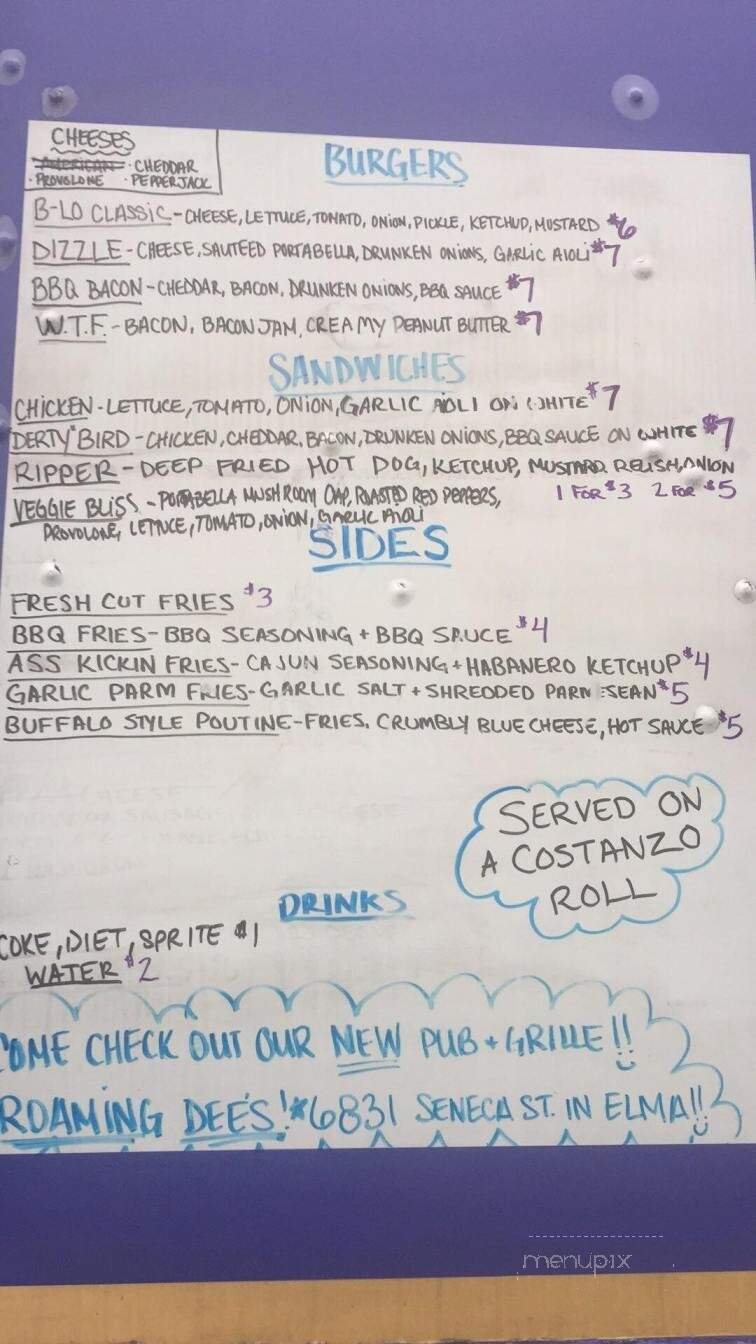 CHEESES
AMERICAN · CHEDDAR
· PROVOLONE · PEPPERJACK
BURGERS
B-LO CLASSIC - CHEESE, LETTUCE, TOMATO, ONION, PICKLE, KETCHUP, MUSTARD $6
DIZZLE - CHEESE, SAUTEED PORTABELLA, DRUNKEN ONIONS, GARLIC AIOLI $7
BBQ BACON - CHEDDAR, BACON, DRUNKEN ONIONS, BBQ SAUCE $7
W.T.F. - BACON, BACON JAM, CREAMY PEANUT BUTTER $7
SANDWICHES
CHICKEN - LETTUCE, TOMATO, ONION, GARLIC AIOLI ON WHITE $7
DERTY BIRD - CHICKEN, CHEDDAR, BACON, DRUNKEN ONIONS, BBQ SAUCE ON WHITE $7
RIPPER - DEEP FRIED HOT DOG, KETCHUP, MUSTARD, RELISH, ONION
1 FOR $3 2 FOR $5
VEGGIE BLISS - PORTABELLA MUSHROOM CAP, ROASTED RED PEPPERS,
PROVOLONE, LETTUCE, TOMATO, ONION, GARLIC AIOLI
SIDES
FRESH CUT FRIES $3
BBQ FRIES - BBQ SEASONING + BBQ SAUCE $4
ASS KICKIN FRIES - CAJUN SEASONING + HABANERO KETCHUP $4
GARLIC PARM FRIES - GARLIC SALT + SHREDDED PARMESEAN $5
BUFFALO STYLE POUTINE - FRIES, CRUMBLY BLUE CHEESE, HOT SAUCE $5
SERVED ON
A COSTANZO
ROLL
DRINKS
COKE, DIET, SPRITE $1
WATER $2
COME CHECK OUT OUR NEW PUB + GRILLE!!
ROAMING DEE'S! *6831 SENECA ST. IN ELMA!!
menupix